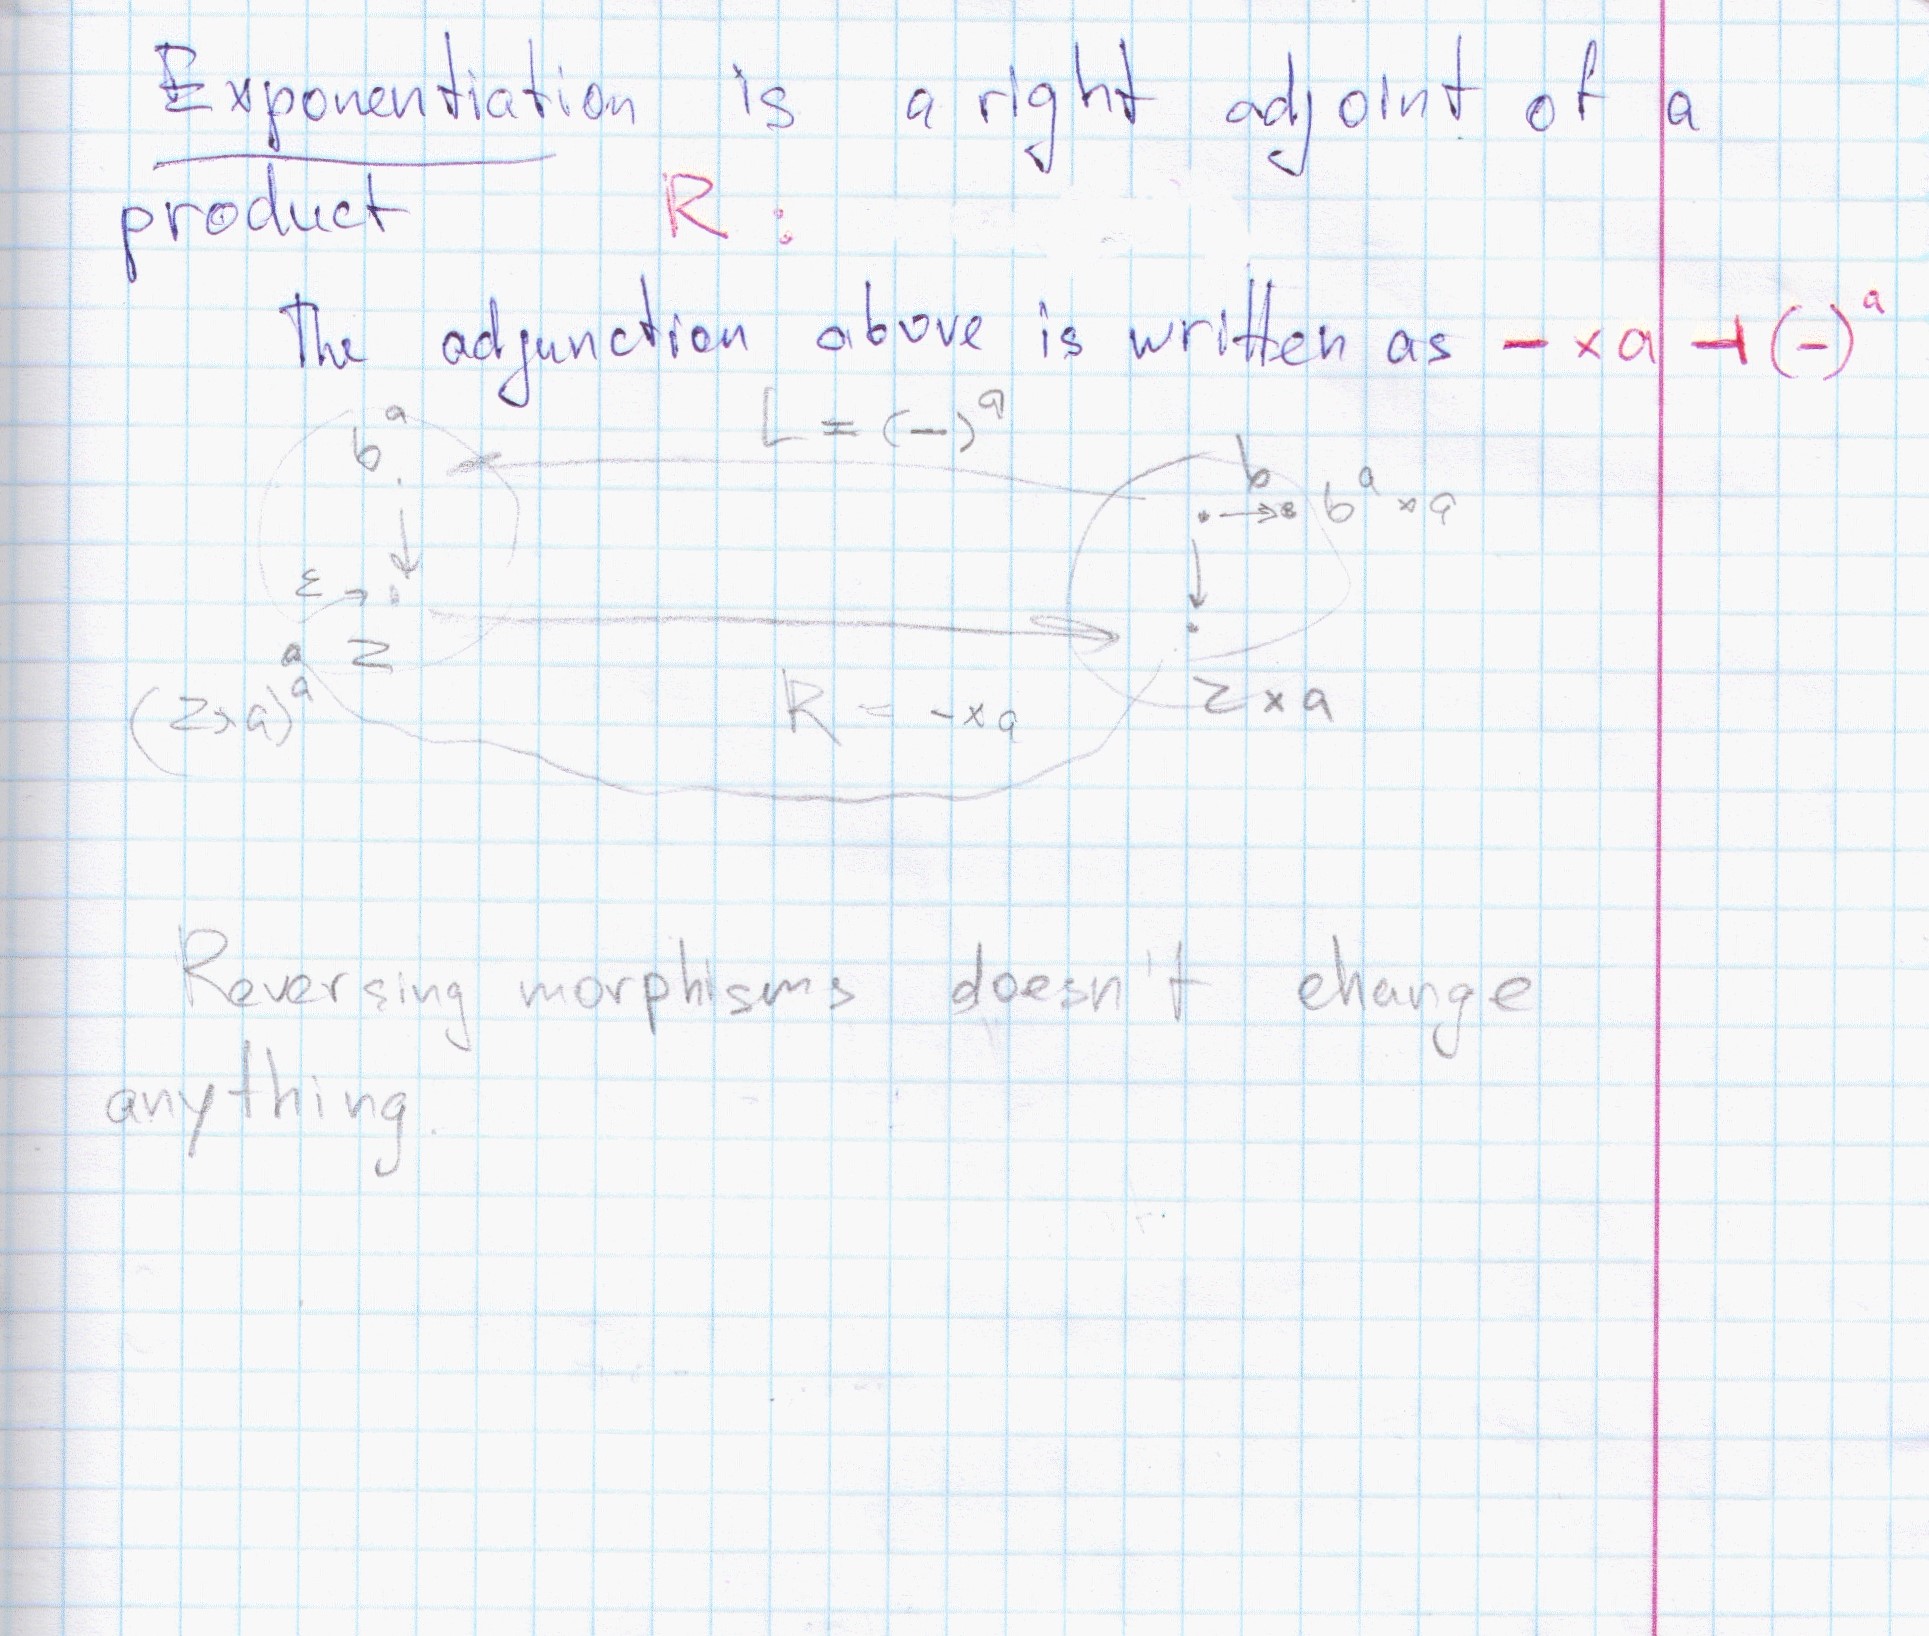 Exponentiation is a right adjoint of a
product R :
The adjunction above is written as - × a ⊣ (-)ᵃ
L = (-)ᵃ
bᵃ
b
bᵃ × a
ε
a z
(z×a)ᵃ
R = -×a
z × a
Reversing morphisms doesn't change
anything.